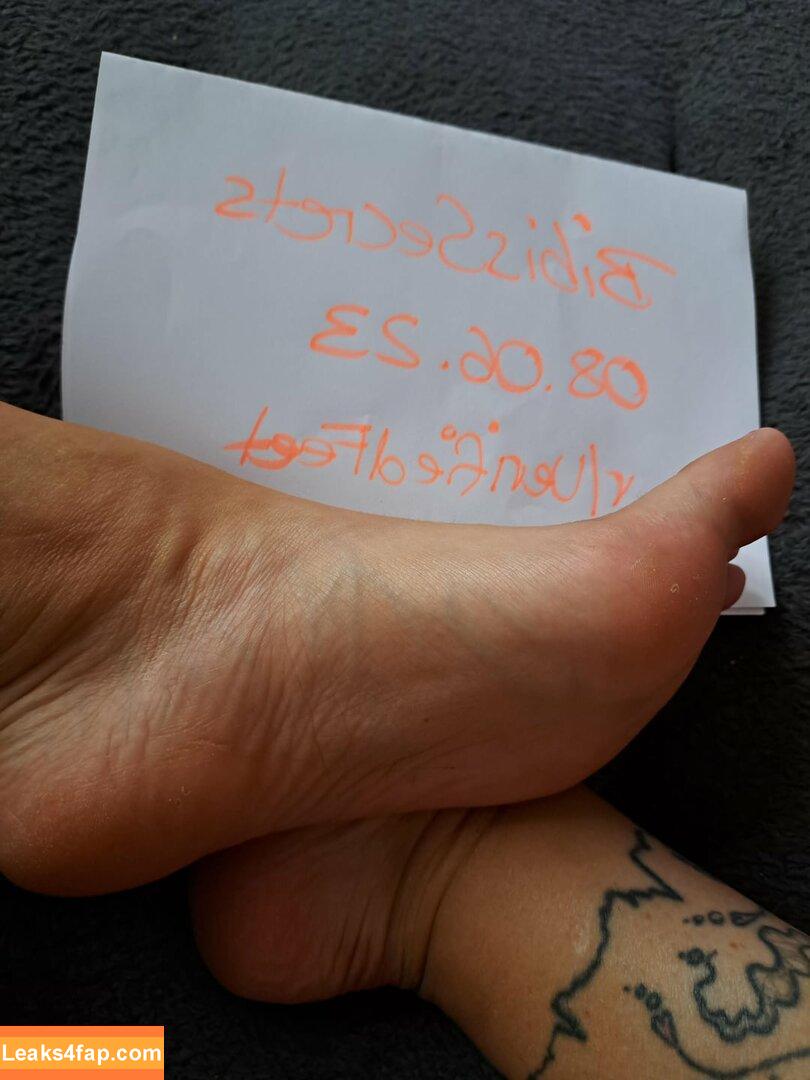 BibisSecrets
08.06.23
r/VerifiedFeet
Leaks4fap.com